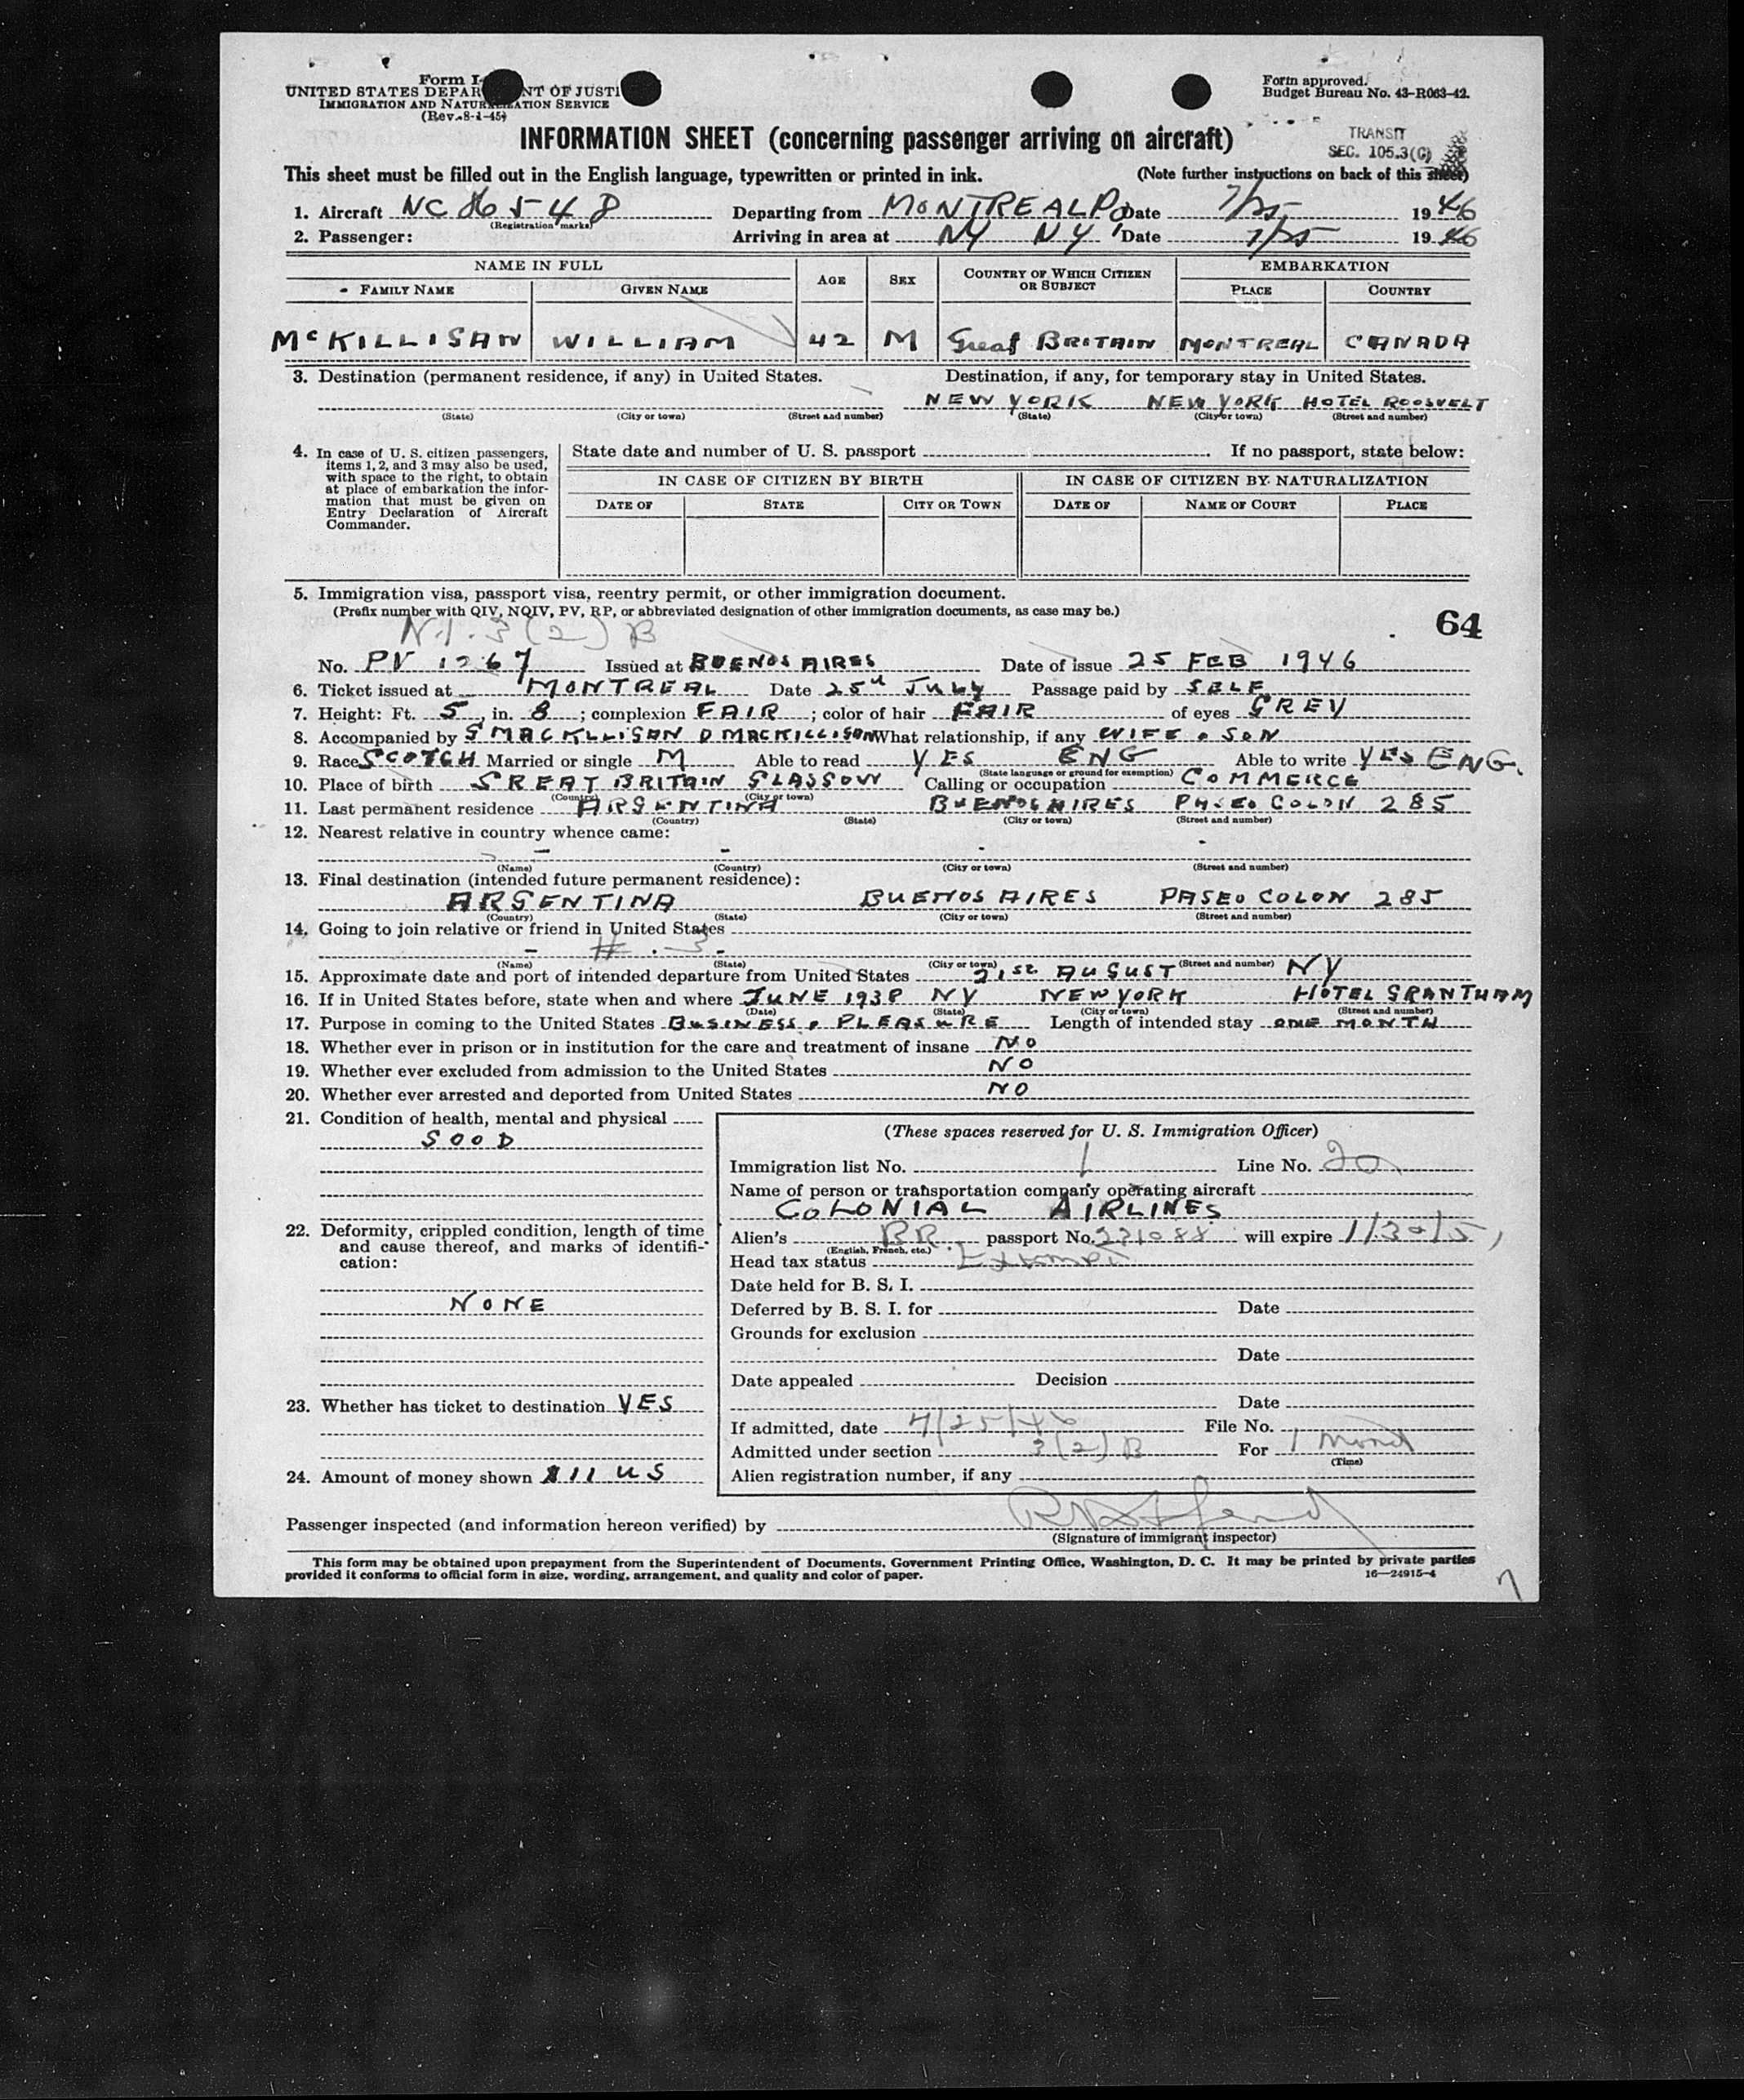 Form I-
UNITED STATES DEPAR NT OF JUSTI
IMMIGRATION AND NATURALIZATION SERVICE
(Rev. 8-1-45)
Form approved.
Budget Bureau No. 43-R063-42.
INFORMATION SHEET (concerning passenger arriving on aircraft)
TRANSIT
SEC. 105.3(C)
This sheet must be filled out in the English language, typewritten or printed in ink. (Note further instructions on back of this sheet)
1. Aircraft NC 86548 Departing from MONTREAL PQ Date 7/25 1946
(Registration marks)
2. Passenger: Arriving in area at NY NY Date 7/25 1946
NAME IN FULL AGE SEX COUNTRY OF WHICH CITIZEN OR SUBJECT EMBARKATION
FAMILY NAME GIVEN NAME PLACE COUNTRY
McKILLIGAN WILLIAM 42 M Great BRITAIN MONTREAL CANADA
3. Destination (permanent residence, if any) in United States. Destination, if any, for temporary stay in United States.
NEW YORK NEW YORK HOTEL ROOSVELT
(State) (City or town) (Street and number) (State) (City or town) (Street and number)
4. In case of U. S. citizen passengers, items 1, 2, and 3 may also be used, with space to the right, to obtain at place of embarkation the information that must be given on Entry Declaration of Aircraft Commander.
State date and number of U. S. passport If no passport, state below:
IN CASE OF CITIZEN BY BIRTH IN CASE OF CITIZEN BY NATURALIZATION
DATE OF STATE CITY OR TOWN DATE OF NAME OF COURT PLACE
5. Immigration visa, passport visa, reentry permit, or other immigration document.
(Prefix number with QIV, NQIV, PV, RP, or abbreviated designation of other immigration documents, as case may be.)
64
N.I. 3 (2) B
No. PV 1267 Issued at BUENOS AIRES Date of issue 25 FEB 1946
6. Ticket issued at MONTREAL Date 25th JULY Passage paid by SELF
7. Height: Ft. 5, in. 8; complexion FAIR; color of hair FAIR of eyes GREY
8. Accompanied by G MACKLLIGAN D MACKILLIGAN What relationship, if any WIFE & SON
9. Race SCOTCH Married or single M Able to read YES ENG Able to write YES ENG.
(State language or ground for exemption)
10. Place of birth GREAT BRITAIN GLASGOW Calling or occupation COMMERCE
(Country) (City or town)
11. Last permanent residence ARGENTINA BUENOS AIRES PASEO COLON 285
(Country) (State) (City or town) (Street and number)
12. Nearest relative in country whence came:
- - - -
(Name) (Country) (City or town) (Street and number)
13. Final destination (intended future permanent residence):
ARGENTINA BUENOS AIRES PASEO COLON 285
(Country) (State) (City or town) (Street and number)
14. Going to join relative or friend in United States
# . 3
(Name) (State) (City or town) (Street and number)
15. Approximate date and port of intended departure from United States 21st AUGUST NY
16. If in United States before, state when and where JUNE 1938 NY NEW YORK HOTEL GRANTHAM
(Date) (State) (City or town) (Street and number)
17. Purpose in coming to the United States BUSINESS & PLEASURE Length of intended stay ONE MONTH
18. Whether ever in prison or in institution for the care and treatment of insane NO
19. Whether ever excluded from admission to the United States NO
20. Whether ever arrested and deported from United States NO
21. Condition of health, mental and physical
GOOD
22. Deformity, crippled condition, length of time and cause thereof, and marks of identification:
NONE
23. Whether has ticket to destination YES
24. Amount of money shown $11 US
(These spaces reserved for U. S. Immigration Officer)
Immigration list No. 1 Line No. 20
Name of person or transportation company operating aircraft
COLONIAL AIRLINES
Alien's BR. passport No. 231088 will expire 1/30/51
(English, French, etc.)
Head tax status Exempt
Date held for B. S. I.
Deferred by B. S. I. for Date
Grounds for exclusion
Date
Date appealed Decision
Date
If admitted, date 7/25/46 File No.
Admitted under section 3(2)B For 1 Month
(Time)
Alien registration number, if any
Passenger inspected (and information hereon verified) by
(Signature of immigrant inspector)
This form may be obtained upon prepayment from the Superintendent of Documents, Government Printing Office, Washington, D. C. It may be printed by private parties
provided it conforms to official form in size, wording, arrangement, and quality and color of paper. 16—24915-4
7